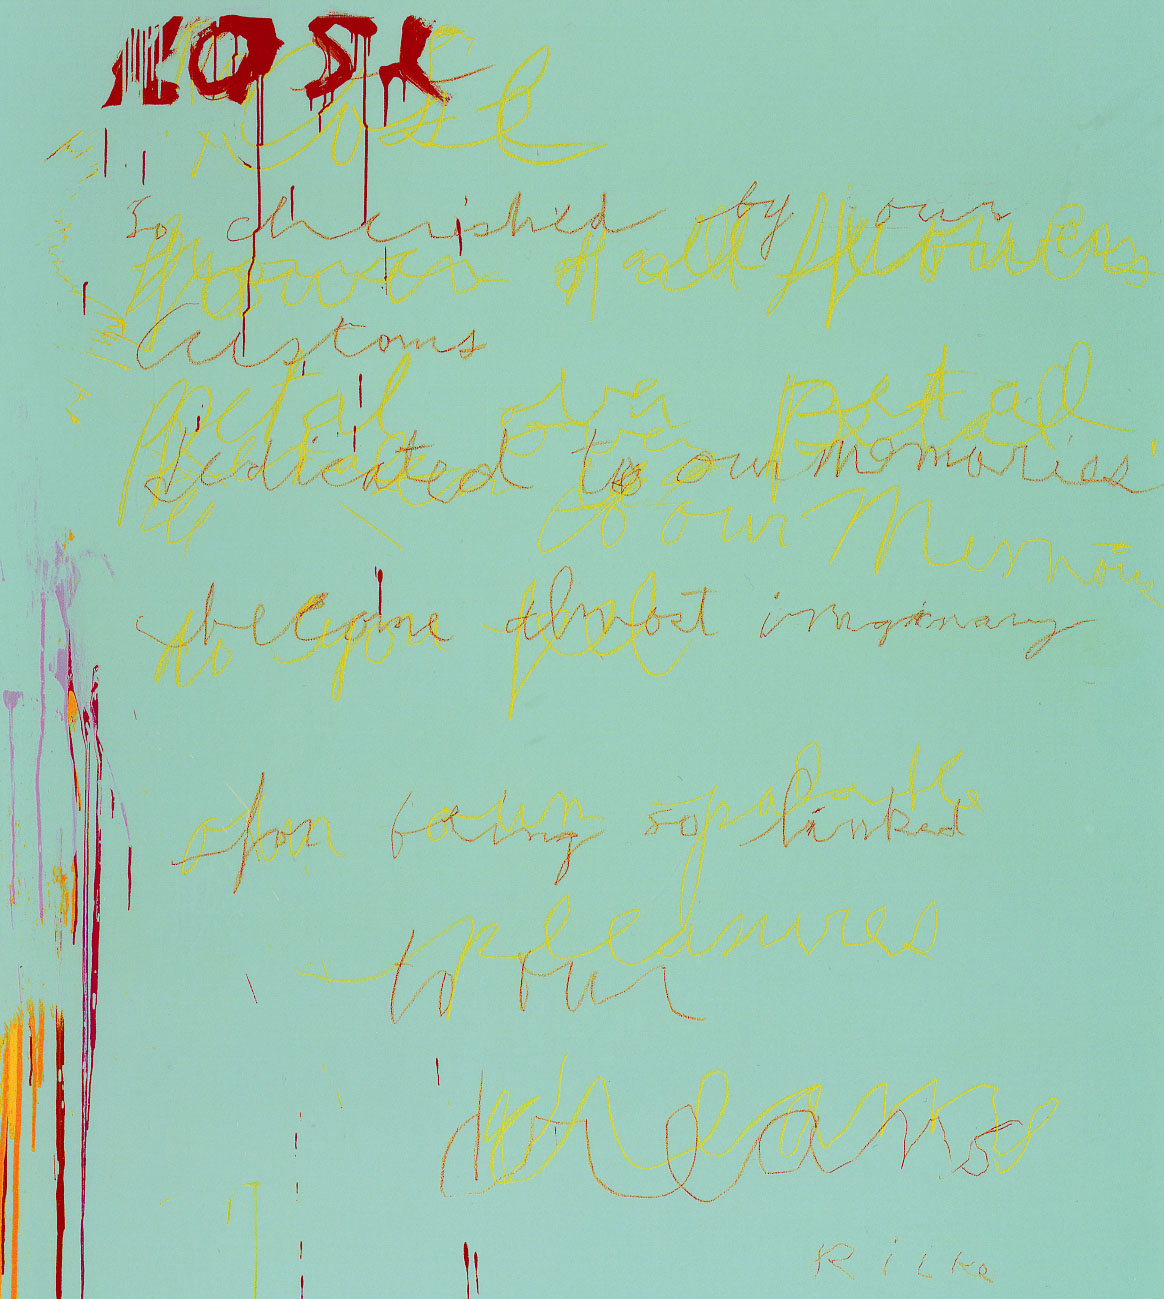 ROSE
Rose
So cherished by our
flower of all flowers
Customs
petal over petal
dedicated to our memories
to our Memories
become almost imaginary
to
for being so linked
pleasures
to our
dreams
Rilke